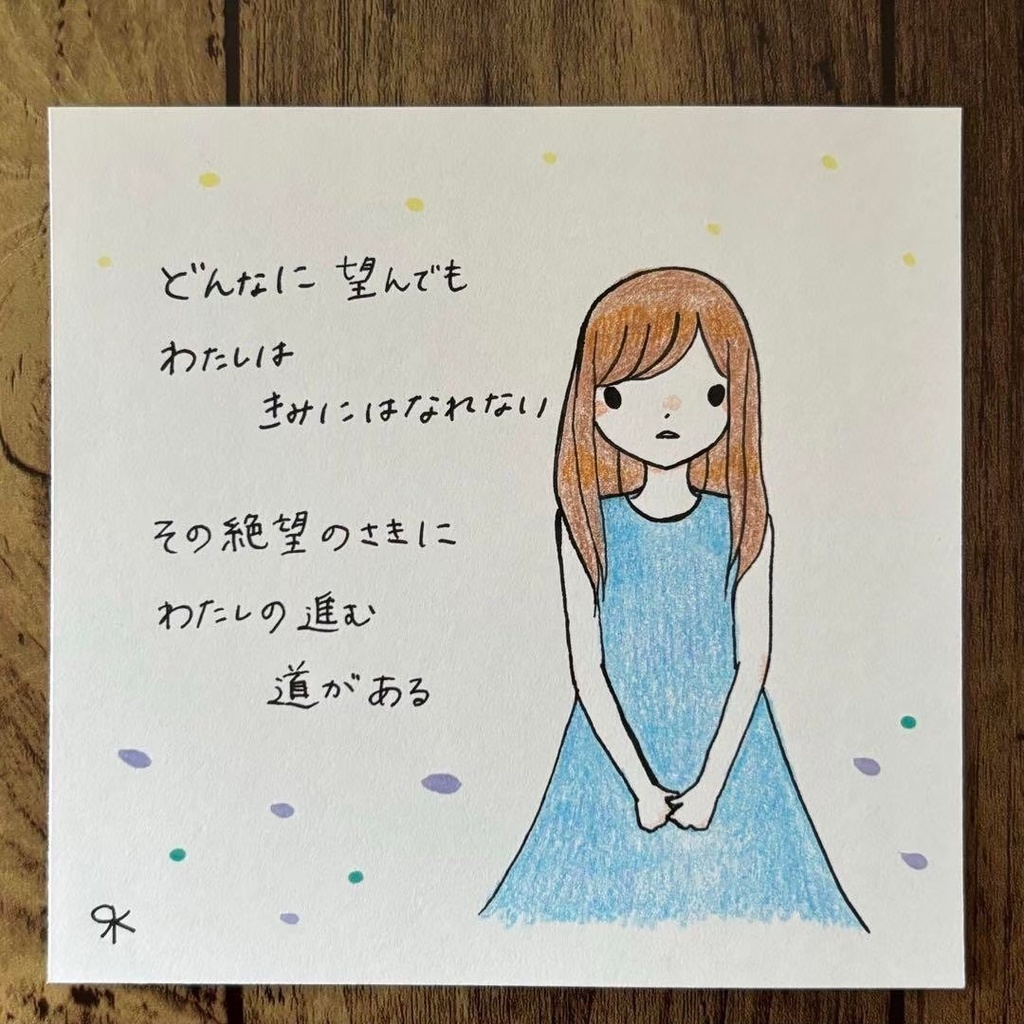 どんなに 望んでも
わたしは
きみにはなれない
その絶望のさきに
わたしの進む
道がある